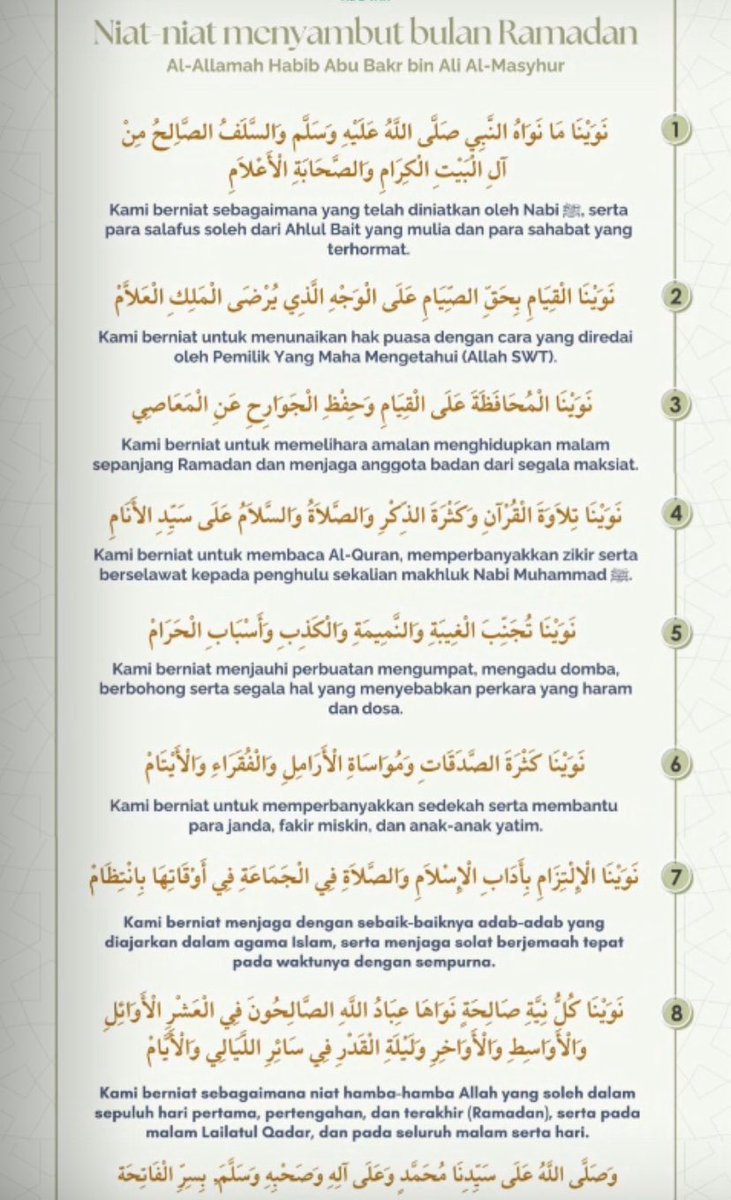 Niat-niat menyambut bulan Ramadan
Al-Allamah Habib Abu Bakr bin Ali Al-Masyhur
1
نَوَيْنَا مَا نَوَاهُ النَّبِي صَلَّى اللَّهُ عَلَيْهِ وَسَلَّم وَالسَّلَفُ الصَّالِحُ مِنْ
آلِ الْبَيْتِ الْكِرَامِ وَالصَّحَابَةِ الْأَعْلَامِ
Kami berniat sebagaimana yang telah diniatkan oleh Nabi ﷺ, serta
para salafus soleh dari Ahlul Bait yang mulia dan para sahabat yang
terhormat.
2
نَوَيْنَا الْقِيَامِ بِحَقِّ الصِّيَامِ عَلَى الْوَجْهِ الَّذِي يُرْضَى الْمَلِكِ الْعَلاَّمْ
Kami berniat untuk menunaikan hak puasa dengan cara yang diredai
oleh Pemilik Yang Maha Mengetahui (Allah SWT).
3
نَوَيْنَا الْمُحَافَظَةَ عَلَى الْقِيَامِ وَحِفْظِ الْجَوَارِحِ عَنِ الْمَعَاصِي
Kami berniat untuk memelihara amalan menghidupkan malam
sepanjang Ramadan dan menjaga anggota badan dari segala maksiat.
4
نَوَيْنَا تِلَاوَةَ الْقُرْآنِ وَكَثْرَةَ الذِّكْرِ وَالصَّلَاةُ وَالسَّلَامُ عَلَى سَيِّدِ الأَنَامِ
Kami berniat untuk membaca Al-Quran, memperbanyakkan zikir serta
berselawat kepada penghulu sekalian makhluk Nabi Muhammad ﷺ.
5
نَوَيْنَا تُجَنِّبَ الْغِيبَةِ وَالنَّمِيمَةِ وَالْكَذِبِ وَأَسْبَابِ الْحَرَامْ
Kami berniat menjauhi perbuatan mengumpat, mengadu domba,
berbohong serta segala hal yang menyebabkan perkara yang haram
dan dosa.
6
نَوَيْنَا كَثْرَةَ الصَّدَقَاتِ وَمُوَاسَاةِ الْأَرَامِلِ وَالْفُقَرَاءِ وَالْأَيْتَامْ
Kami berniat untuk memperbanyakkan sedekah serta membantu
para janda, fakir miskin, dan anak-anak yatim.
7
نَوَيْنَا الْإِلْتِزَامِ بِأَدَابِ الْإِسْلَامِ وَالصَّلَاةِ فِي الْجَمَاعَةِ فِي أَوْقَاتِهَا بِانْتِظَامْ
Kami berniat menjaga dengan sebaik-baiknya adab-adab yang
diajarkan dalam agama Islam, serta menjaga solat berjemaah tepat
pada waktunya dengan sempurna.
8
نَوَيْنَا كُلُّ نِيَّةٍ صَالِحَةٍ نَوَاهَا عِبَادُ اللَّهِ الصَّالِحُونَ فِي الْعَشْرِ الْأَوَائِلِ
وَالْأَوَاسِطِ وَالْأَوَاخِرِ وَلَيْلَةِ الْقَدْرِ فِي سَائِرِ اللَّيَالِي وَالْأَيَّامْ
Kami berniat sebagaimana niat hamba-hamba Allah yang soleh dalam
sepuluh hari pertama, pertengahan, dan terakhir (Ramadan), serta pada
malam Lailatul Qadar, dan pada seluruh malam serta hari.
وَصَلَّى اللَّهُ عَلَى سَيِّدِنَا مُحَمَّدٍ وَعَلَى آلِهِ وَصَحْبِهِ وَسَلَّمَ, بِسِرِّ الْفَاتِحَة